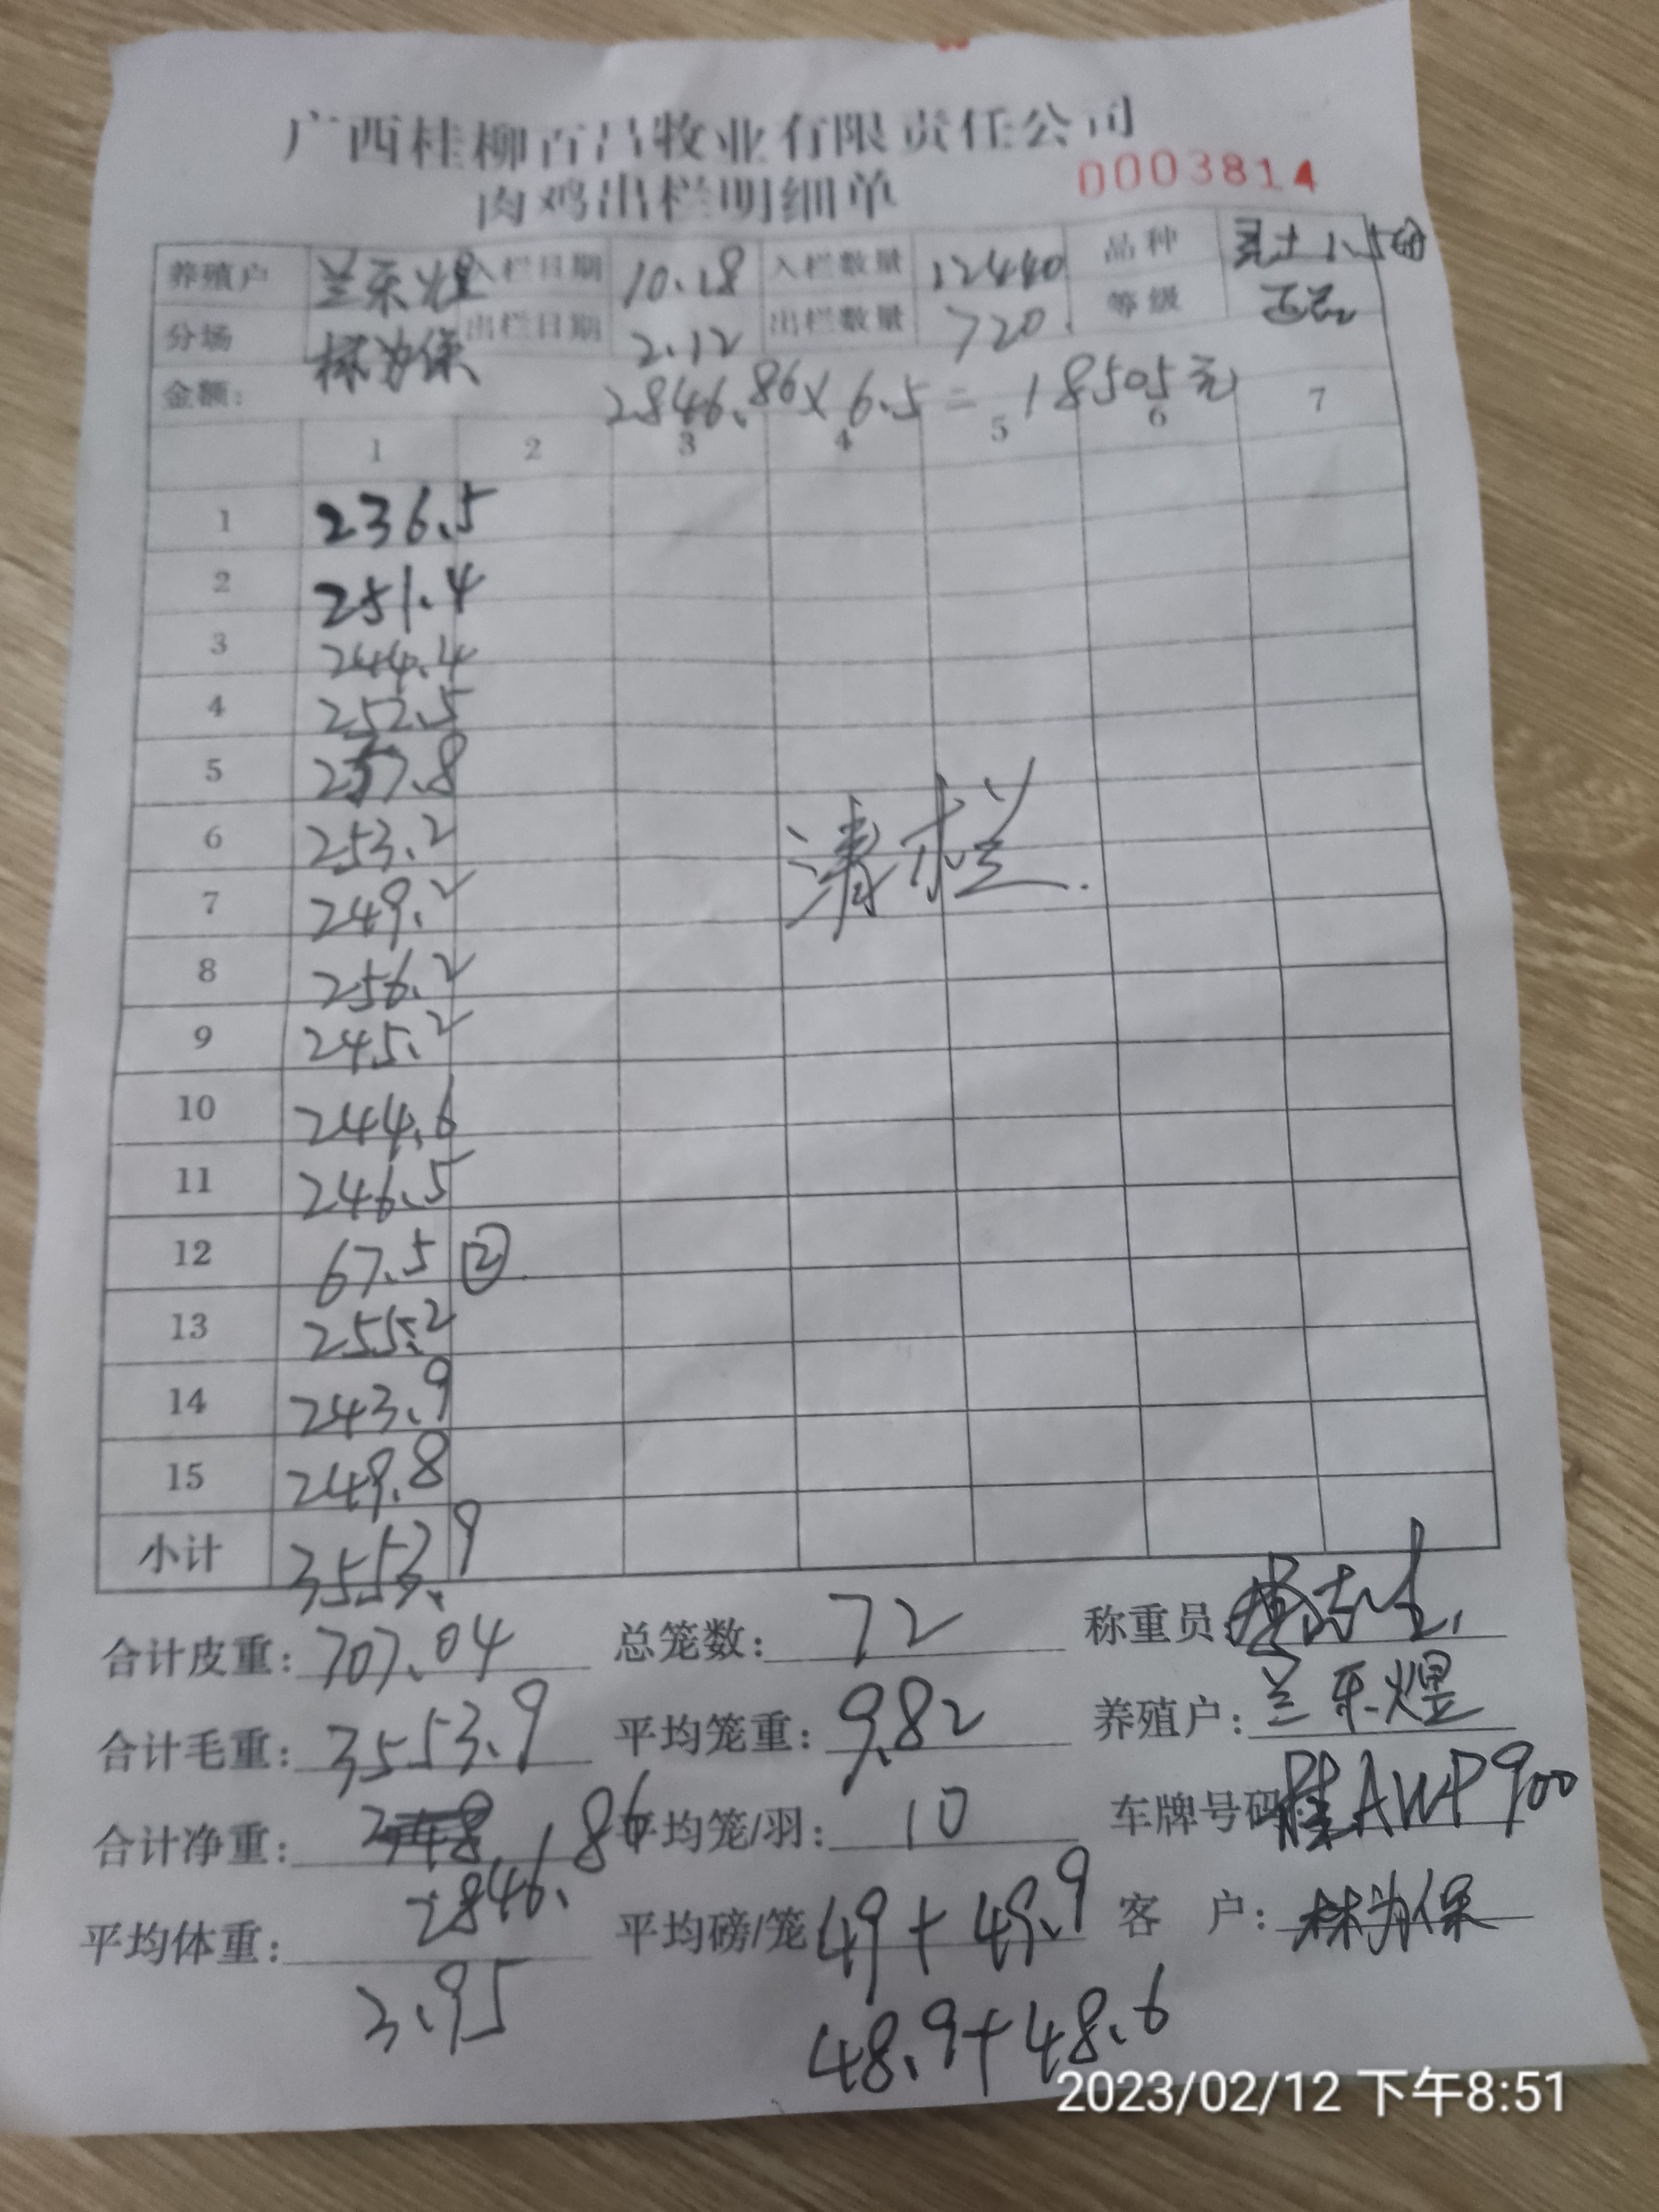 广西桂柳百昌牧业有限责任公司
肉鸡出栏明细单 0003814
养殖户 兰乐煜 入栏日期 10.18 入栏数量 12440 品种 土1.5
分场 林为保 出栏日期 2.12 出栏数量 720. 等级
金额: 2846.86×6.5=18505元
1 2 3 4 5 6 7
1 236.5
2 251.4
3 244.4
4 252.5
5 257.8
6 253.2
7 249.2
8 256.2
9 245.2
清栏.
10 244.6
11 246.5
12 67.5 ②.
13 255.2
14 243.9
15 249.8
小计 3553.9
合计皮重: 707.04 总笼数: 72 称重员
合计毛重: 3553.9 平均笼重: 9.82 养殖户: 兰乐煜
合计净重: .86 平均笼/羽: 10 车牌号码 桂AWP900
2846.
平均体重: 平均磅/笼 49+49.9 客 户: 林为保
3.95 48.9+48.6
2023/02/12 下午8:51